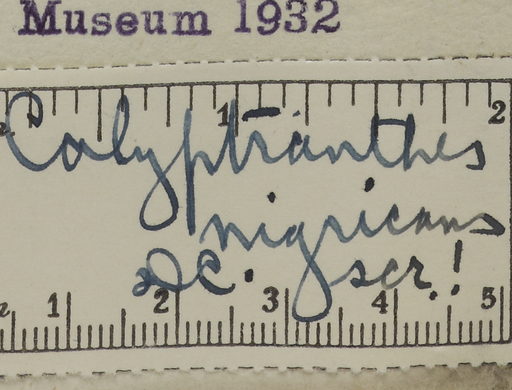 Museum 1932
1 2
Calyptranthes
nigricans
DC. scr.!
1 2 3 4 5